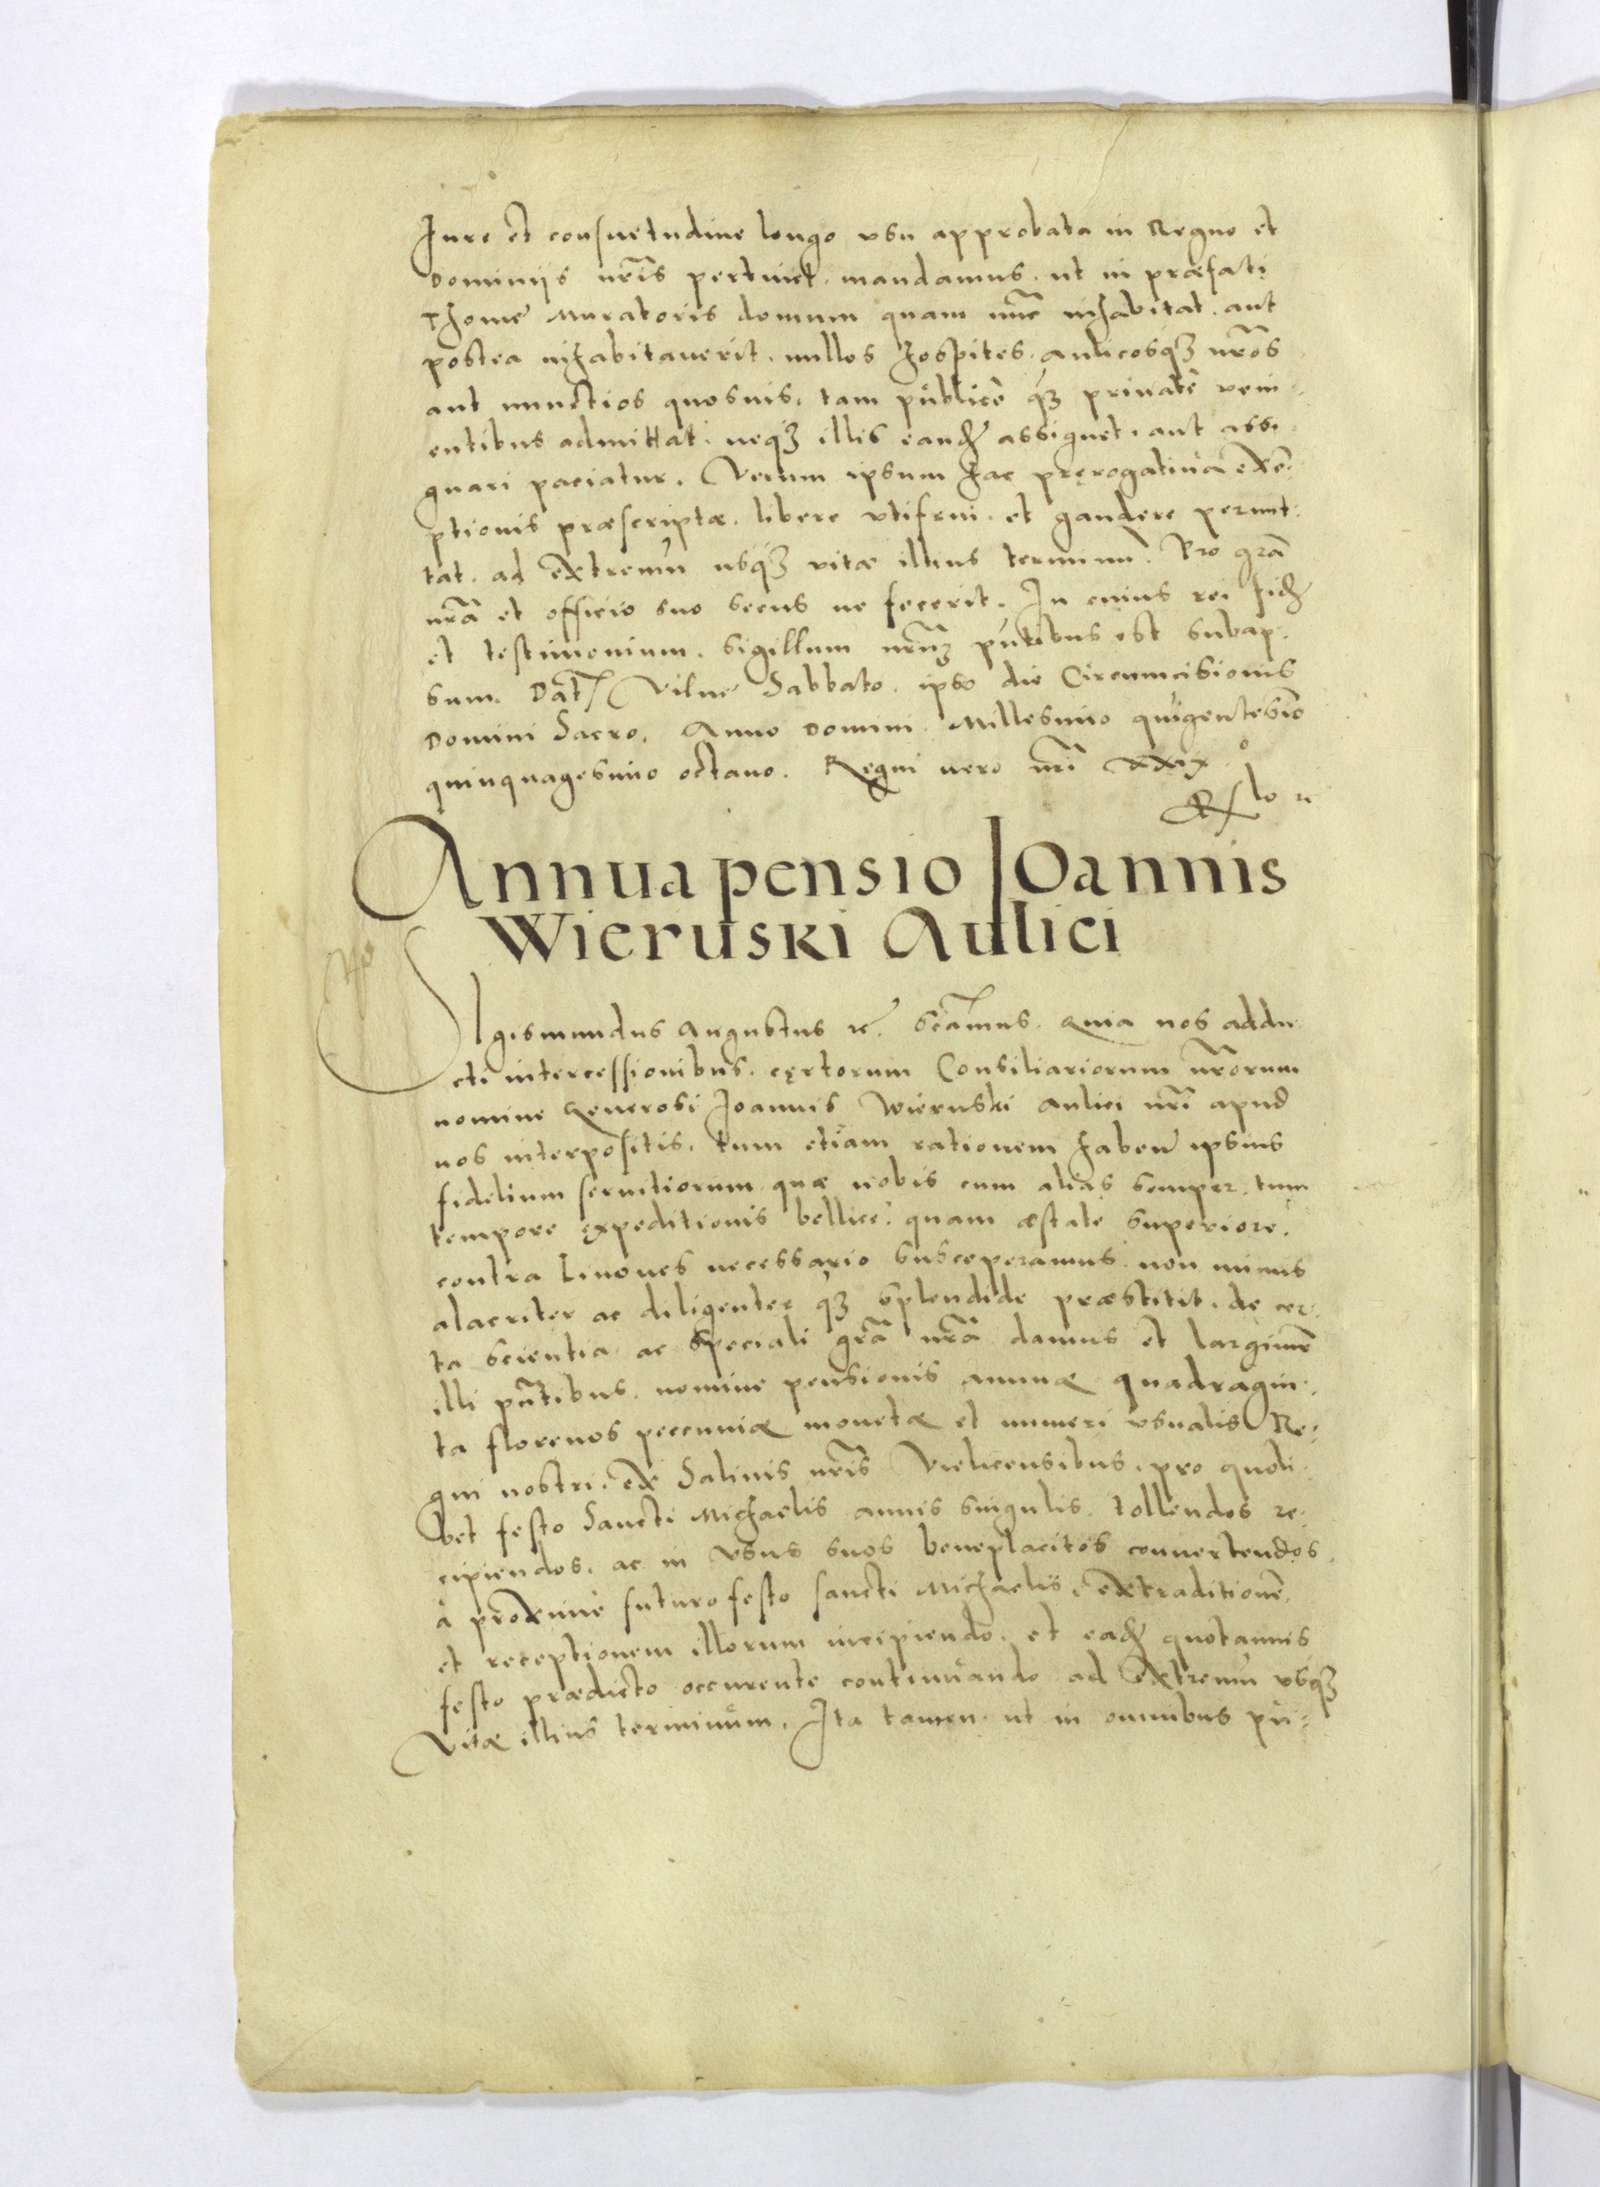 Iure et consuetudine longo vsu approbata in Regno et
Dominijs nr̃is pertinet. mandamus. ut in præfati
Thome Muratoris domum quam nũc inhabitat. aut
postea inhabitauerit. nullos hospites. Aulicosq3 nr̃os
aut nunctios quosuis. tam publice q̃3 priuatè veni-
entibus admittat. neq3 illis eand assignet. aut assi-
gnari paciatur. Verum ipsum hac pręrogatiua exẽ-
ptionis præscriptæ. libere vtifrui. et gaudere permit-
tat. ad extremũ usq3 vitæ illius terminũ. Pro gr̃a
nr̃a et officio suo secus ne fecerit. In cuius rei fid
et testimonium. sigillum nr̃m pñtibus est subap-
sum. Dat Vilnę Sabbato. ipso die Circumcisionis
Domini Sacro. Anno Domini. Millesimo quigentesĩo
quinquagesimo octauo. Regni vero nr̃i XXIX°.
Annua pensio IOannis
Wieruski Aulici
SIgismundus Augustus rc̃. Sc̃amus. Quia nos addu-
cti intercessionibus. cęrtorum Consiliariorum nr̃orum
nomine Generosi Joannis Wieruski Aulici nr̃i apud
nos interpositis. tum etiam rationem habeñ ipsius
fidelium seruitiorum quæ nobis cum alias semper. tum
tempore expeditionis bellicę. quam æstate superiore.
contra Liuones necessario susceperamus non minus
alacriter ac diligenter q̃3 splendide præstitit. de cer-
ta scientia ac speciali gr̃a nr̃a damus et largimur̃
illi pñtibus. nomine pensionis annuæ quadragin-
ta florenos peccuniæ monetæ et numeri vsualis Re-
gni nostri. ex Salinis nr̃is Vielicensibus. pro quoli-
bet festo Sancti Michaelis annis singulis. tollendos re-
cipiendos. ac in vsus suos beneplacitos conuertendos.
à proximè futuro festo sancti Michaelis. extraditionẽ.
et receptionem illorum incipiendo. et ead quotannis
festo prædicto occurente continuando ad extremũ vsq3
Vitæ illius terminum. Ita tamen. ut in omnibus pũ-